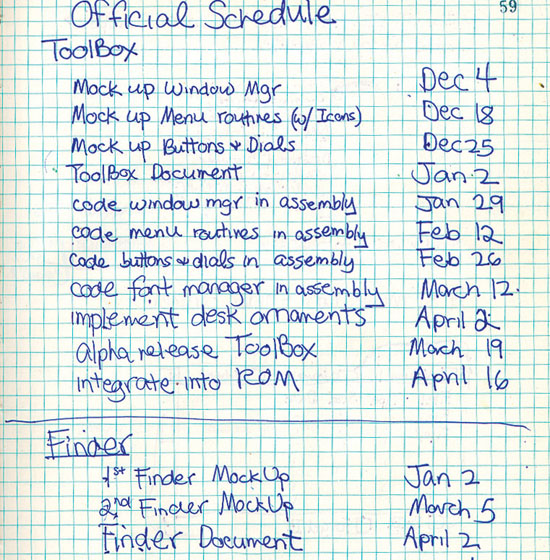 59
Official Schedule
ToolBox
Mock up Window Mgr Dec 4
Mock up Menu routines (w/ Icons) Dec 18
Mock up Buttons + Dials Dec 25
ToolBox Document Jan 2
code window mgr in assembly Jan 29
code menu routines in assembly Feb 12
code buttons + dials in assembly Feb 26
code font manager in assembly March 12.
implement desk ornaments April 2
alpha release ToolBox March 19
integrate into ROM April 16
Finder
1st Finder MockUp Jan 2
2nd Finder MockUp March 5
Finder Document April 2